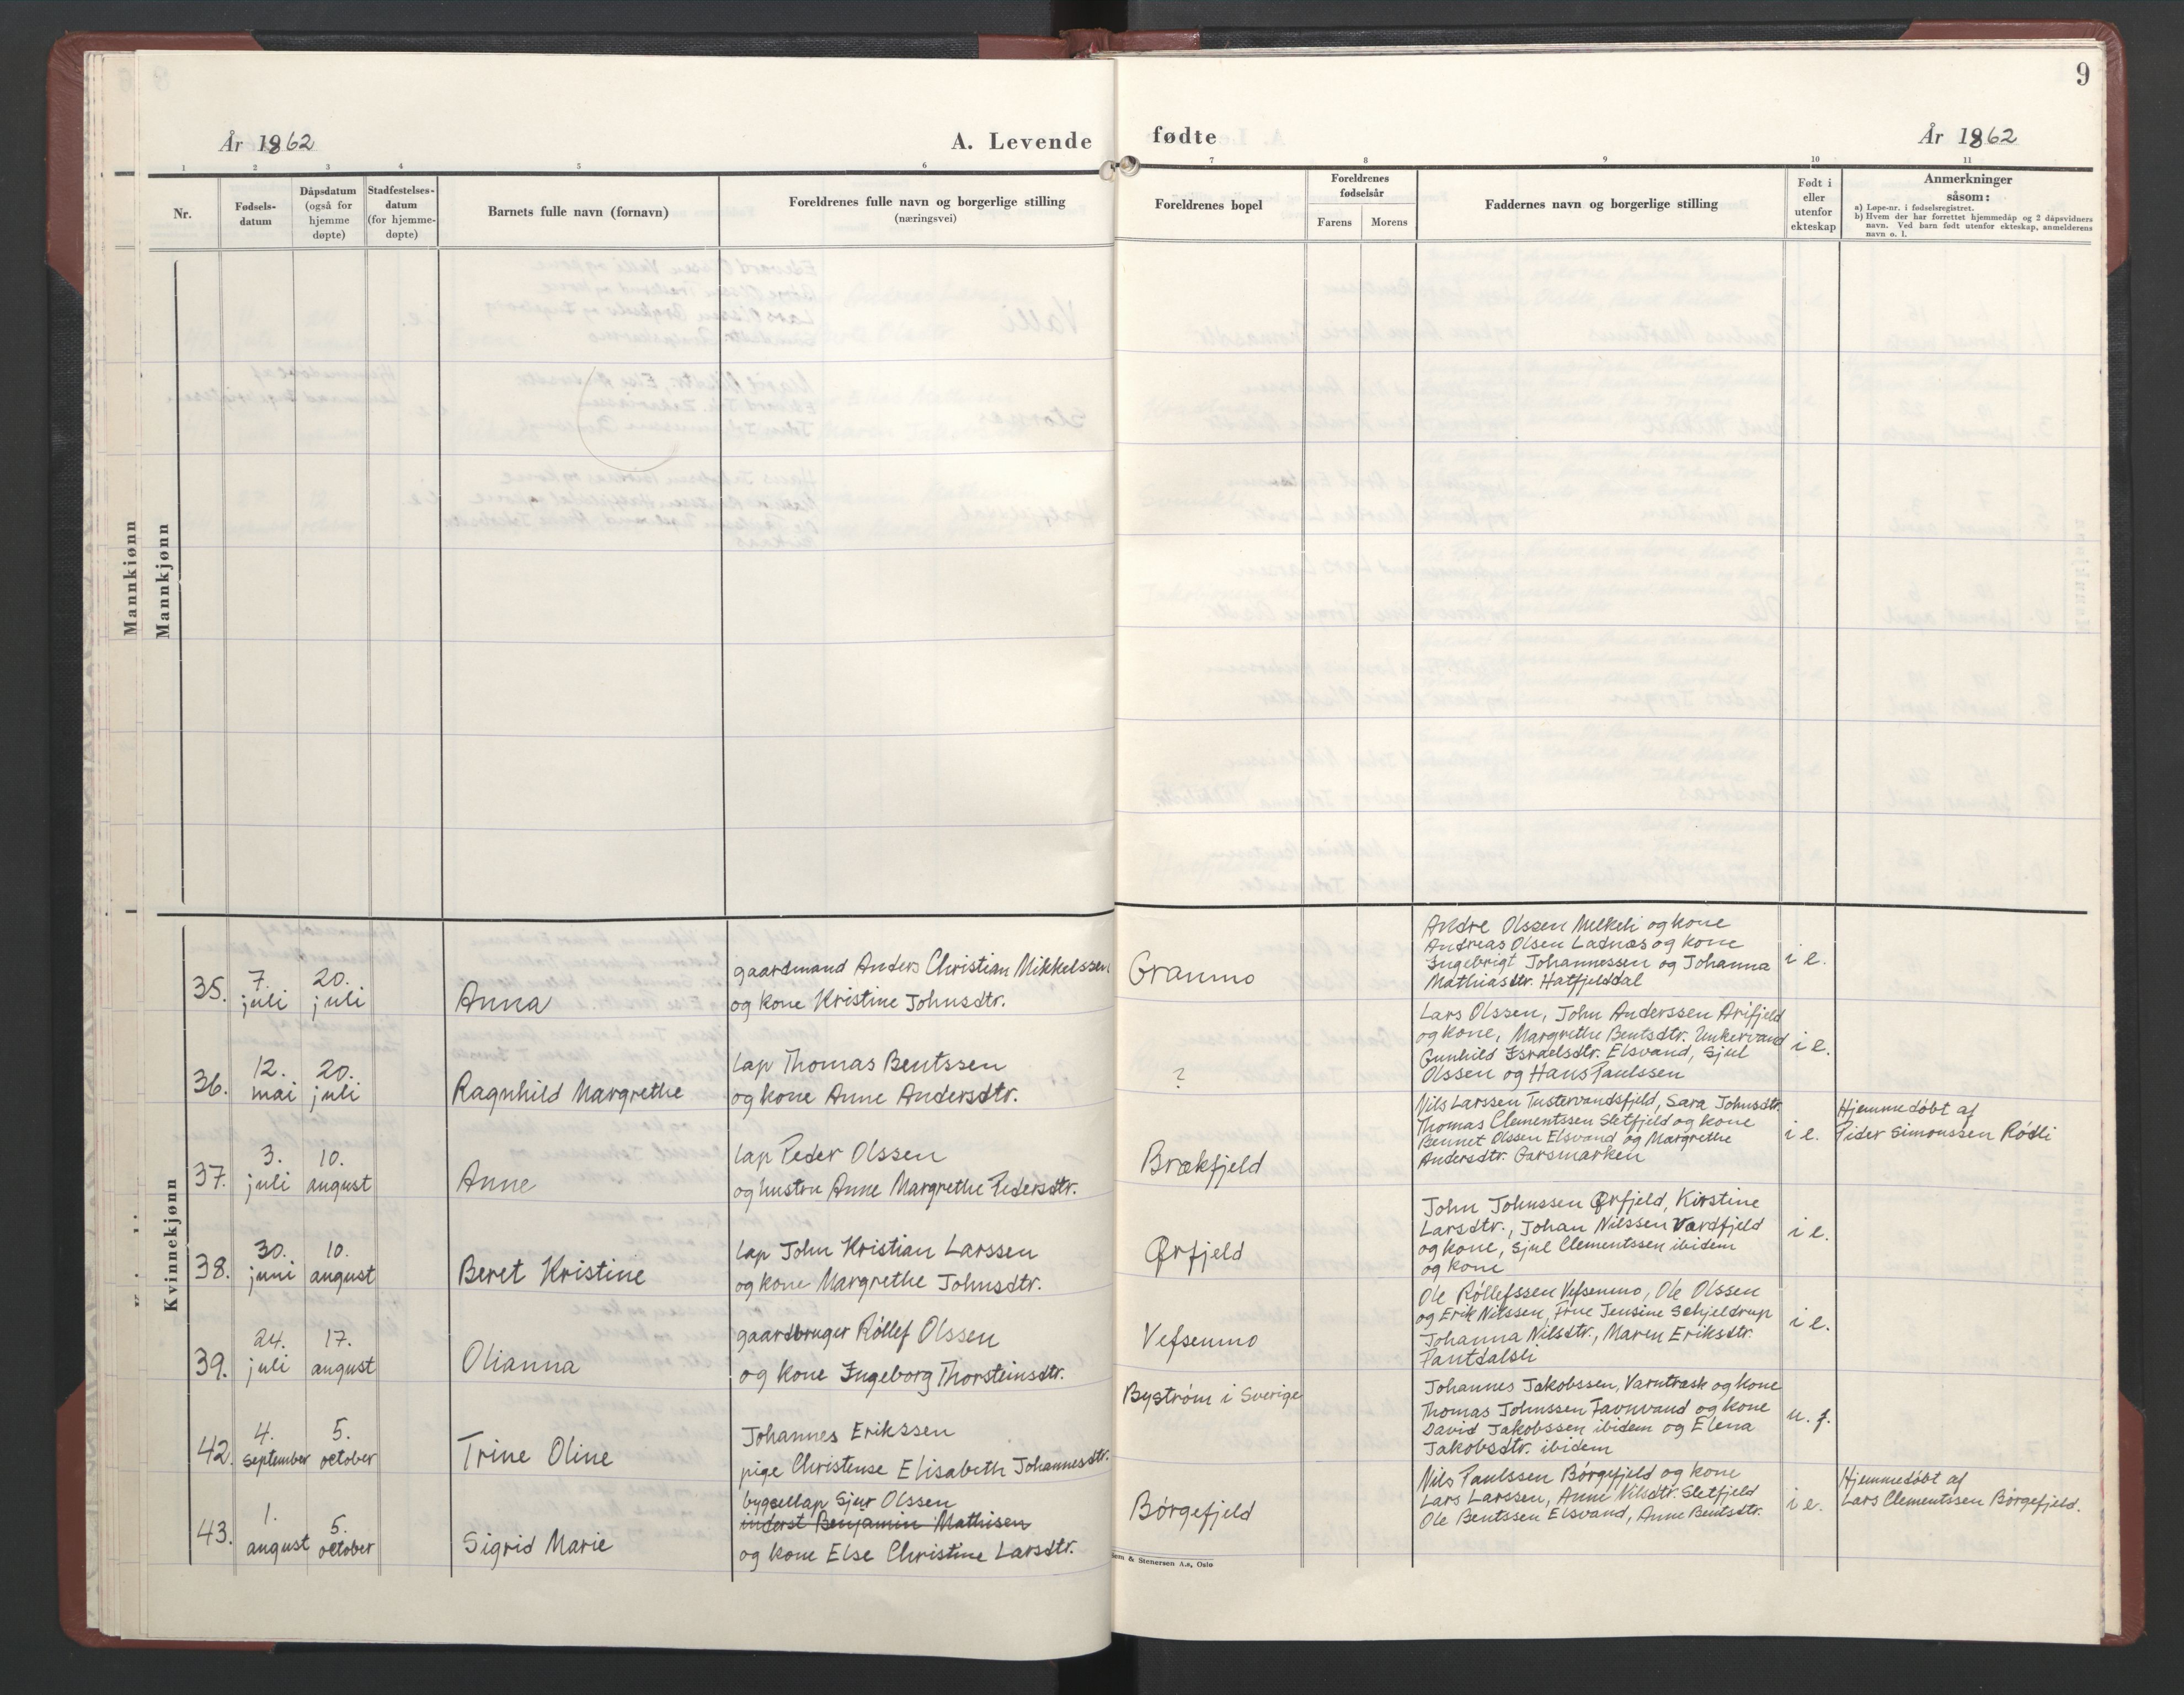 9
År 1862
A. Levende
fødte
År 1862
1 2 3 4 5 6 7 8 9 10 11
Nr.
Fødsels-
datum
Dåpsdatum
(også for
hjemme
døpte)
Stadfestelses-
datum
(for hjemme-
døpte)
Barnets fulle navn (fornavn)
Foreldrenes fulle navn og borgerlige stilling
(næringsvei)
Foreldrenes bopel
Foreldrenes
fødselsår
Farens
Morens
Faddernes navn og borgerlige stilling
Født i
eller
utenfor
ekteskap
Anmerkninger
såsom:
a) Løpe-nr. i fødselsregistret.
b) Hvem der har forrettet hjemmedåp og 2 dåpsvidners
navn. Ved barn født utenfor ekteskap, anmelderens
navn o. l.
Mannkjønn
Mannkjønn
Kvinnekjønn
35.
7.
juli
20.
juli
Anna
gaardmand Anders Christian Mikkelssen
og kone Kristine Johnsdtr.
Granmo
Andre Olssen Melkeli og kone
Andreas Olsen Ladnæs og kone
Ingebrigt Johannessen og Johanna
Mathiasdtr. Hatfjelddal
i e.
36.
12.
mai
20.
juli
Ragnhild Margrethe
lap Thomas Bentssen
og kone Anne Andersdtr.
?
Lars Olssen, John Anderssen Arifjeld
og kone, Margrethe Bentsdtr. Unkervand
Gunhild Israelsdtr. Elsvand, Sjul
Olssen og Hans Paulssen
i e.
37.
3.
juli
10.
august
Anne
lap Peder Olssen
og hustru Anne Margrethe Pedersdtr.
Brækfjeld
Nils Larssen Tustervandsfjeld, Sara Johnsdtr.
Thomas Clementssen Sletfjeld og kone
Bennet Olssen Elsvand og Margrethe
Andersdtr. Garsmarken
i e.
Hjemmedøbt af
Peder Simonssen Rödli
38.
30.
juni
10.
august
Beret Kristine
lap John Kristian Larssen
og kone Margrethe Johnsdtr.
Ørfjeld
John Johnssen Ørfjeld, Kirstine
Larsdtr., Johan Nilssen Vardfjeld
og kone, Sjul Clementssen ibidem
og kone
i e.
39.
24.
juli
17.
august
Olianna
gaardbruger Röllef Olssen
og kone Ingeborg Thorsteinsdtr.
Vefsenmo
Ole Röllefssen Vefsenmo, Ole Olssen
og Erik Nilssen, Frue Jensine Schjeldrup
Johanna Nilsdtr., Maren Eriksdtr.
Pantdalsli
i e.
42.
4.
september
5.
october
Trine Oline
Johannes Erikssen
pige Christense Elisabeth Johannesdtr.
Byström i Sverige
Johannes Jakobssen, Varntræsk og kone
Thomas Johnssen Favnvand og kone
David Jakobssen ibidem og Elena
Jakobsdtr. ibidem
u. f.
43.
1.
august
5.
october
Sigrid Marie
bygsellap Sjur Olssen
inderst Benjamin Mathisen
og kone Else Christine Larsdtr.
Börgefjeld
Nils Paulssen Börgefjeld og kone
Lars Larssen, Anne Nilsdtr. Sletfjeld
Ole Bentssen Elsvand, Anne Bentsdtr.
i e.
Hjemmedøbt af
Lars Clementssen Börgefjeld.
& Stenersen A.s, Oslo